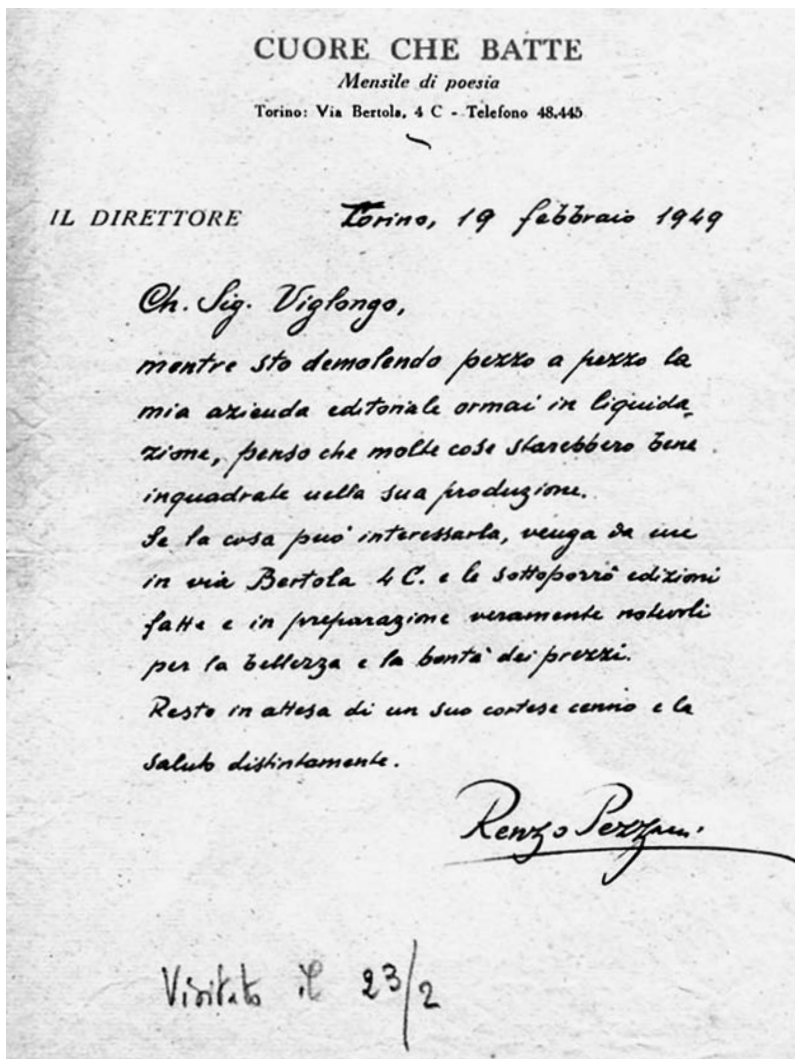 CUORE CHE BATTE
Mensile di poesia
Torino: Via Bertola, 4 C - Telefono 48.445
IL DIRETTORE Torino, 19 febbraio 1949
Ch. Sig. Viglongo,
mentre sto demolendo pezzo a pezzo la
mia azienda editoriale ormai in liquida-
zione, penso che molte cose starebbero bene
inquadrate nella sua produzione.
Se la cosa può interessarla, venga da me
in via Bertola 4 C. e le sottoporrò edizioni
fatte e in preparazione veramente notevoli
per la bellezza e la bontà dei prezzi.
Resto in attesa di un suo cortese cenno e la
saluto distintamente.
Renzo Pezzani
Visitato il 23/2